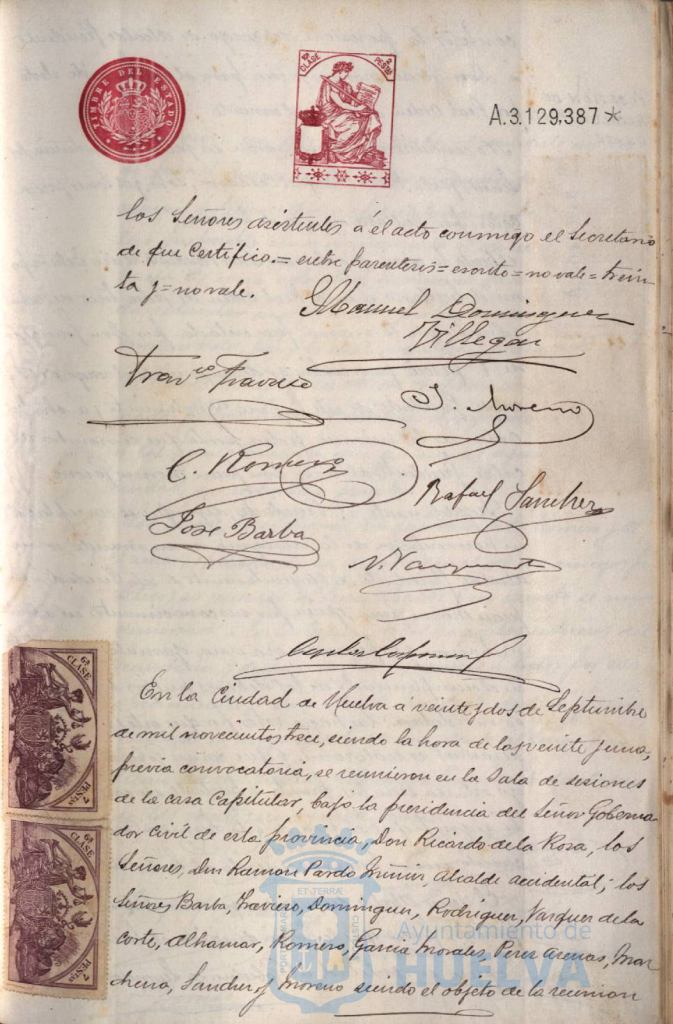 TIMBRE DEL ESTADO
CLASE
PESTAS
A.3.129,387*
los Señores asistentes á el acto conmigo el Secretario
de que Certifico.= entre parentesis= escrito= no vale= trein
ta y= no vale.
Manuel Dominguez
Villegas
Franco Travieso
J. Moreno
C. Romero
Rafael Sanchez
Jose Barba
En la Ciudad de Huelva á veinte y dos de Septiembre
de mil novecientos trece, siendo la hora de las veinte y una,
previa convocatoria, se reunieron en la Sala de sesiones
de la casa Capitular, bajo la presidencia del Señor Goberna
dor Civil de esta provincia, Don Ricardo de la Rosa, los
Señores, Don Ramon Pardo Alcalde accidental; los
Señores Barba, Travieso, Dominguez, Rodriguez, Vazquez de la
Corte, Alhamar, Romero, Garcia Morales, Perez Arenas, Mar
chena, Sanchez, y Moreno siendo el objeto de la reunion
6ª CLASE
7 PESTAS
6ª CLASE
7 PESTAS
Ayuntamiento de
HUELVA